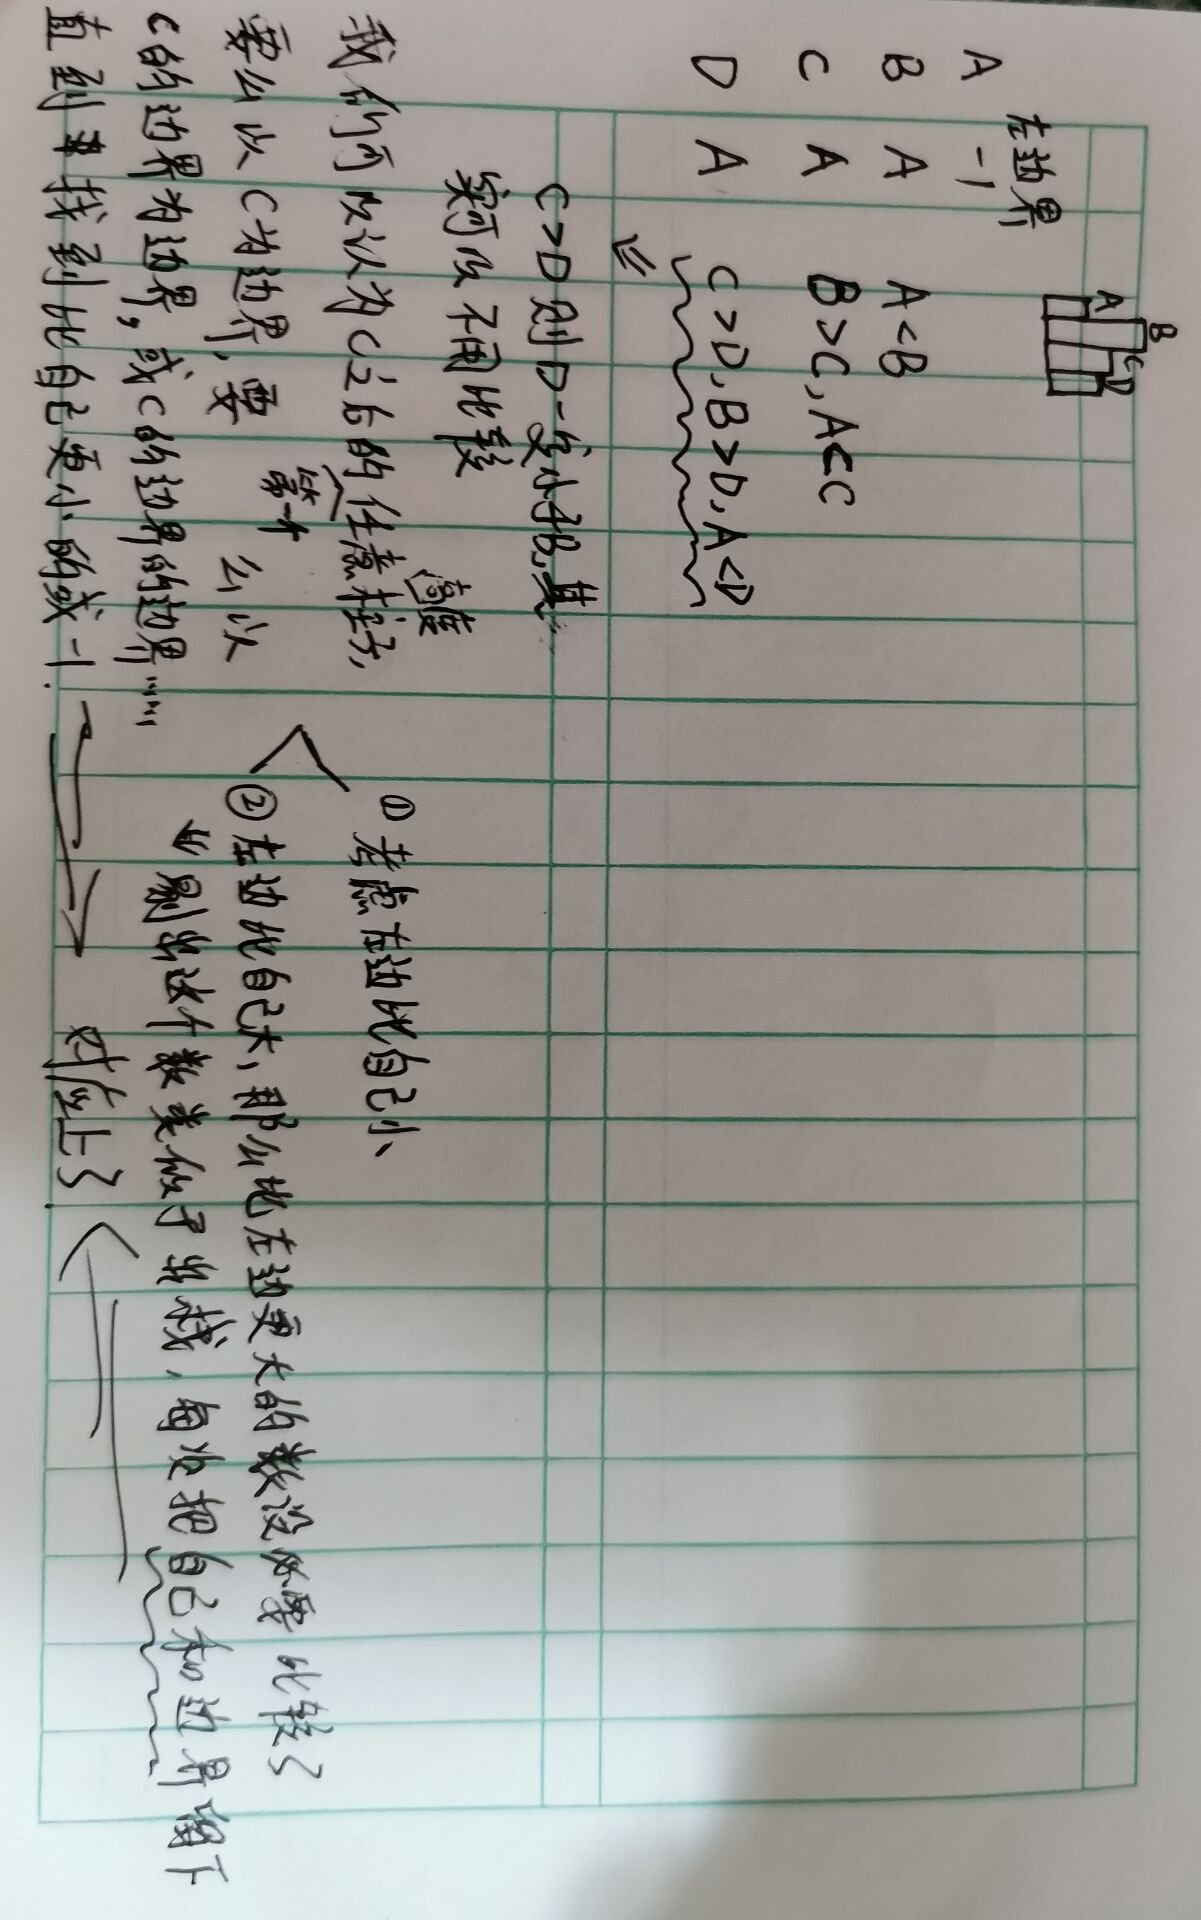 左边界
A B C D
A -1
B A A<B
C A B>C, A<C
D A C>D, B>D, A<D
C>D 则D一定小于B,其
实可以不用比较
我们可以认为C之后的任意柱子,
高度
要么以C为边界,要么以
第一个
C的边界为边界,或C的边界的边界……
直到找到比自己更小的或-1.
①考虑左边比自己小
②左边比自己大,那么比左边更大的数没必要比较了
剔出这个数类似于出栈,每次把自己和边界留下
对应上了